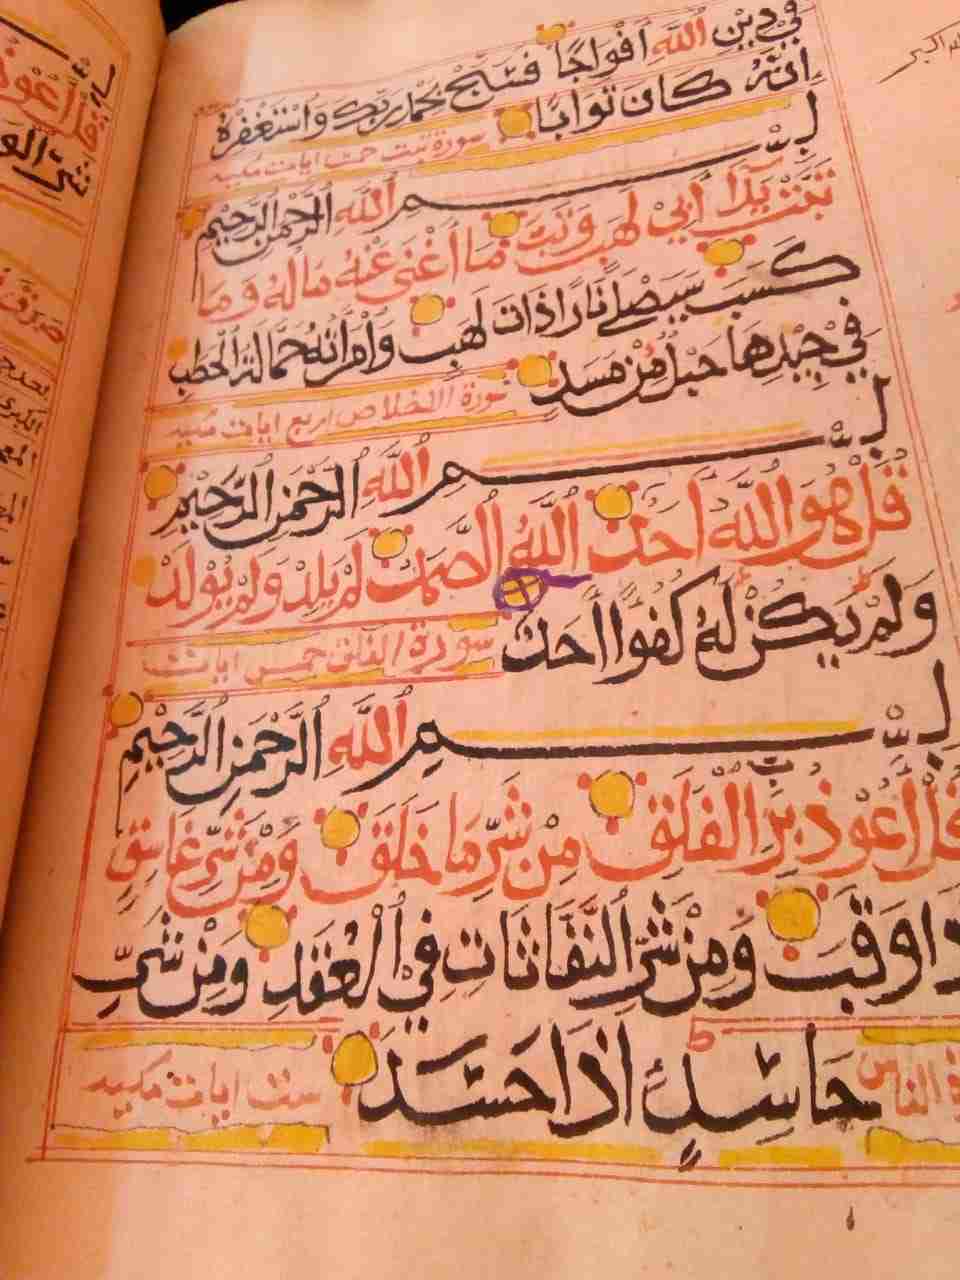 في دين الله افواجا فسبح بحمد ربك واستغفره
انه كان توابا
سورة تبت خمس ايات مكيه
بسم الله الرحمن الرحيم
تبت يدا ابي لهب وتب ما اغنى عنه ماله وما
كسب سيصلى نارا ذات لهب وامراته حمالة الحطب
في جيدها حبل من مسد
سورة الاخلاص اربع ايات مكيه
بسم الله الرحمن الرحيم
قل هو الله احد الله الصمد لم يلد ولم يولد
ولم يكن له كفوا احد
سورة الفلق خمس ايات
بسم الله الرحمن الرحيم
قل اعوذ برب الفلق من شر ما خلق ومن شر غاسق
اذا وقب ومن شر النفاثات في العقد ومن شر
حاسد اذا حسد
الناس ست ايات مكيه